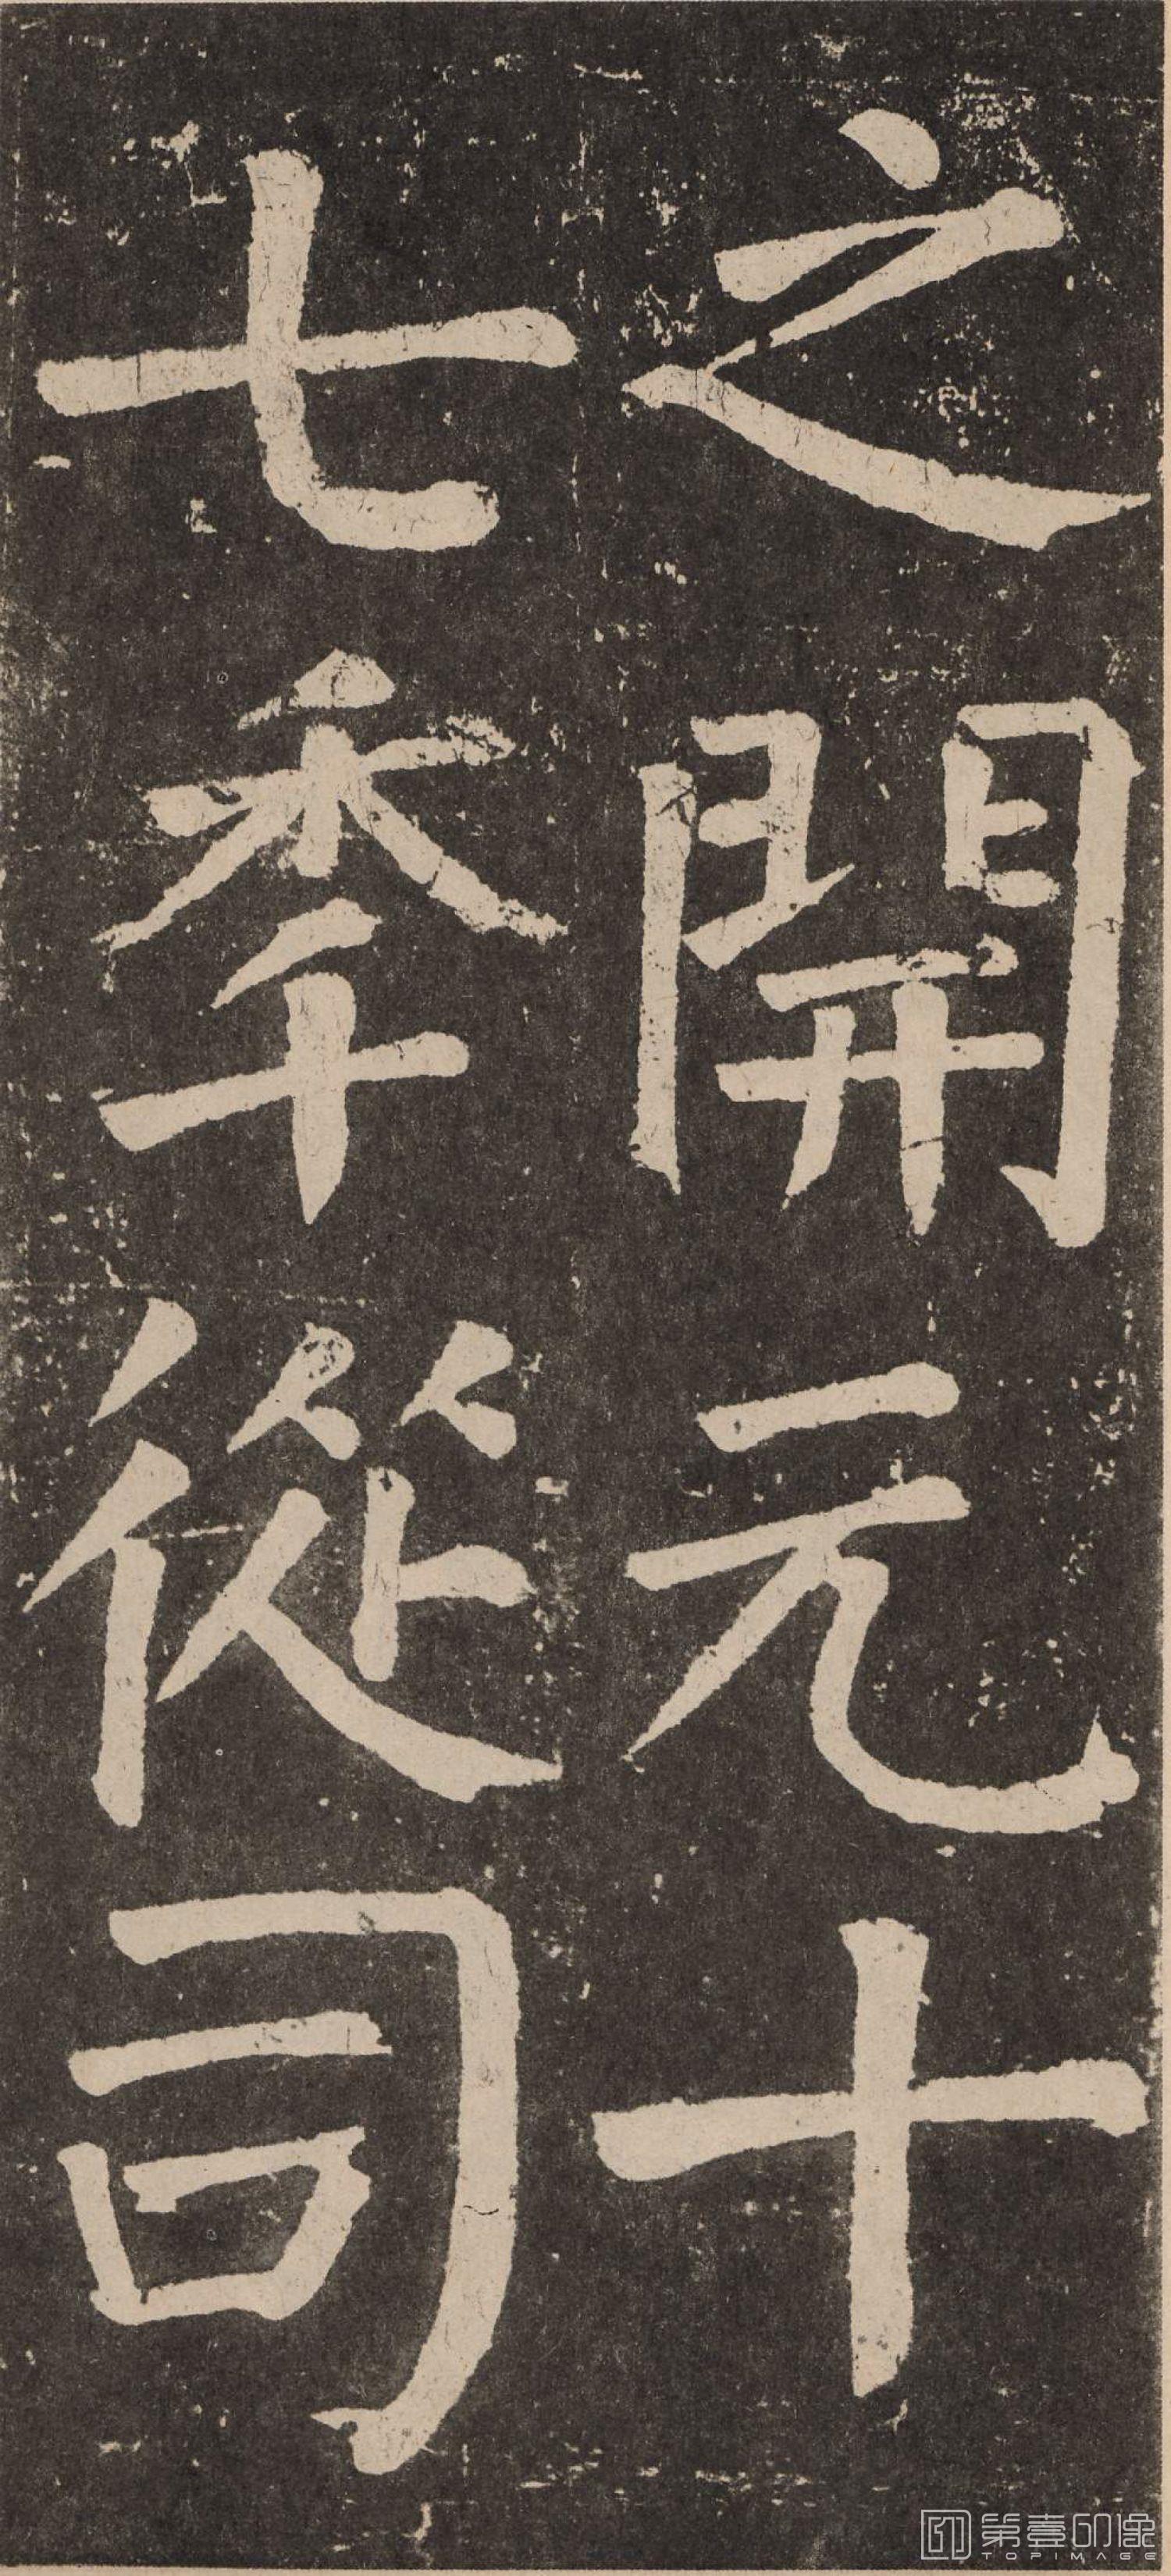 之開元十
七秊從司
第壹印像
TOPIMAGE